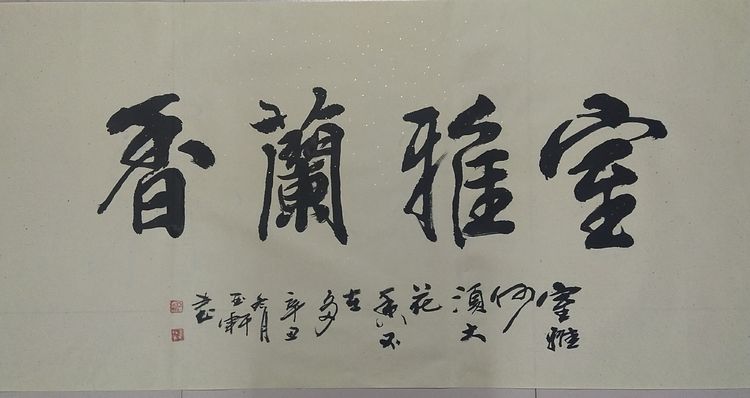 室雅蘭香
室雅何須大花香不在多辛丑冬月玉軒書